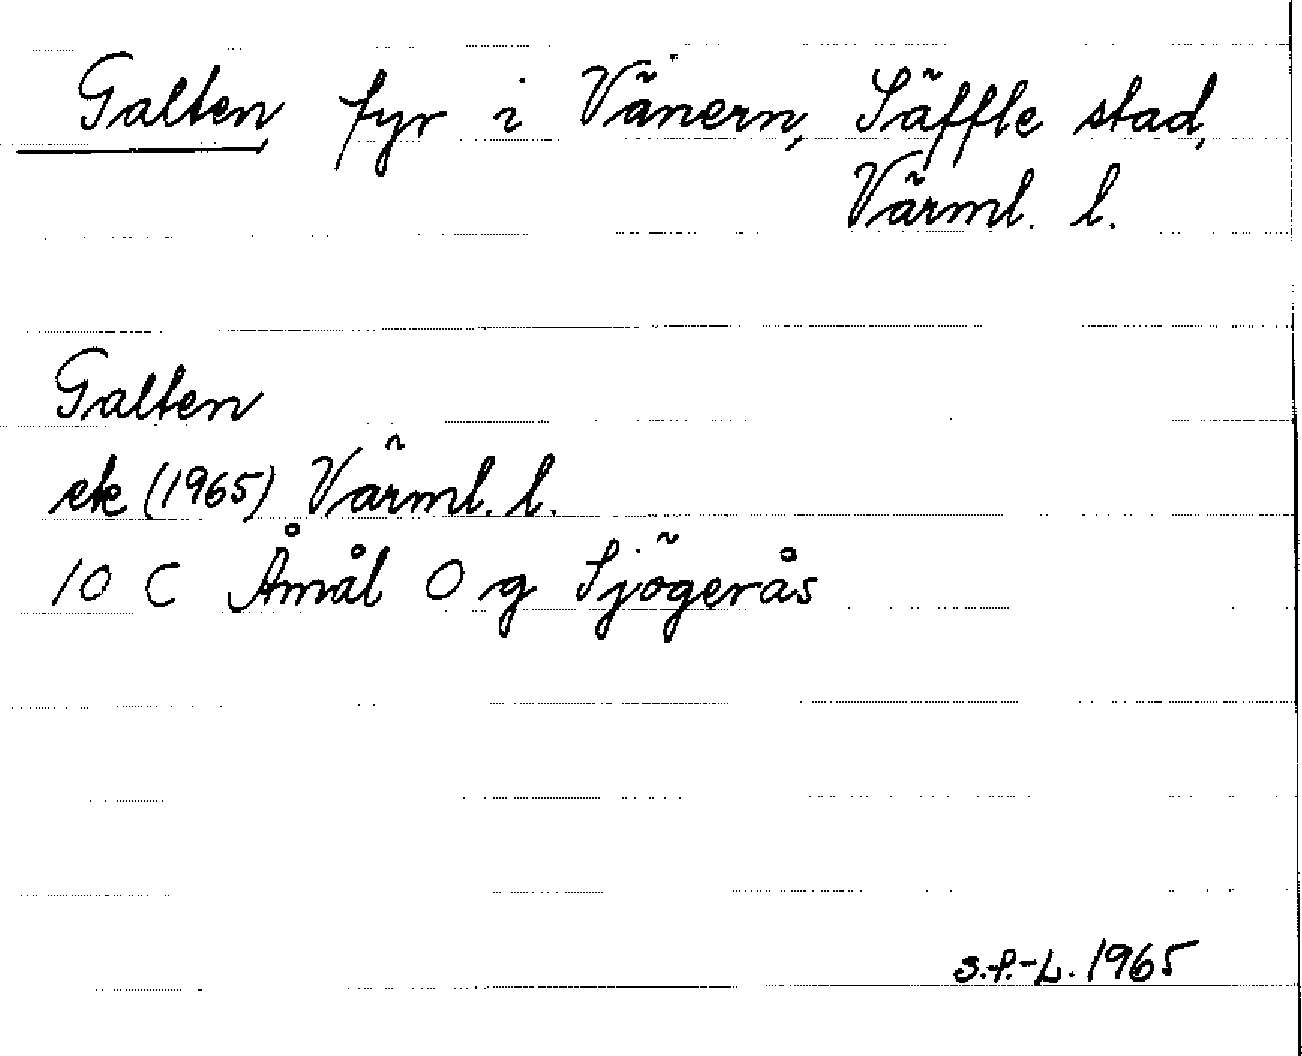 Galten, fyr i Vänern, Säffle stad,
Värml. l.
Galten
ek (1965) Värml. l.
10 C Åmål O g Sjögerås
S.F.-L. 1965